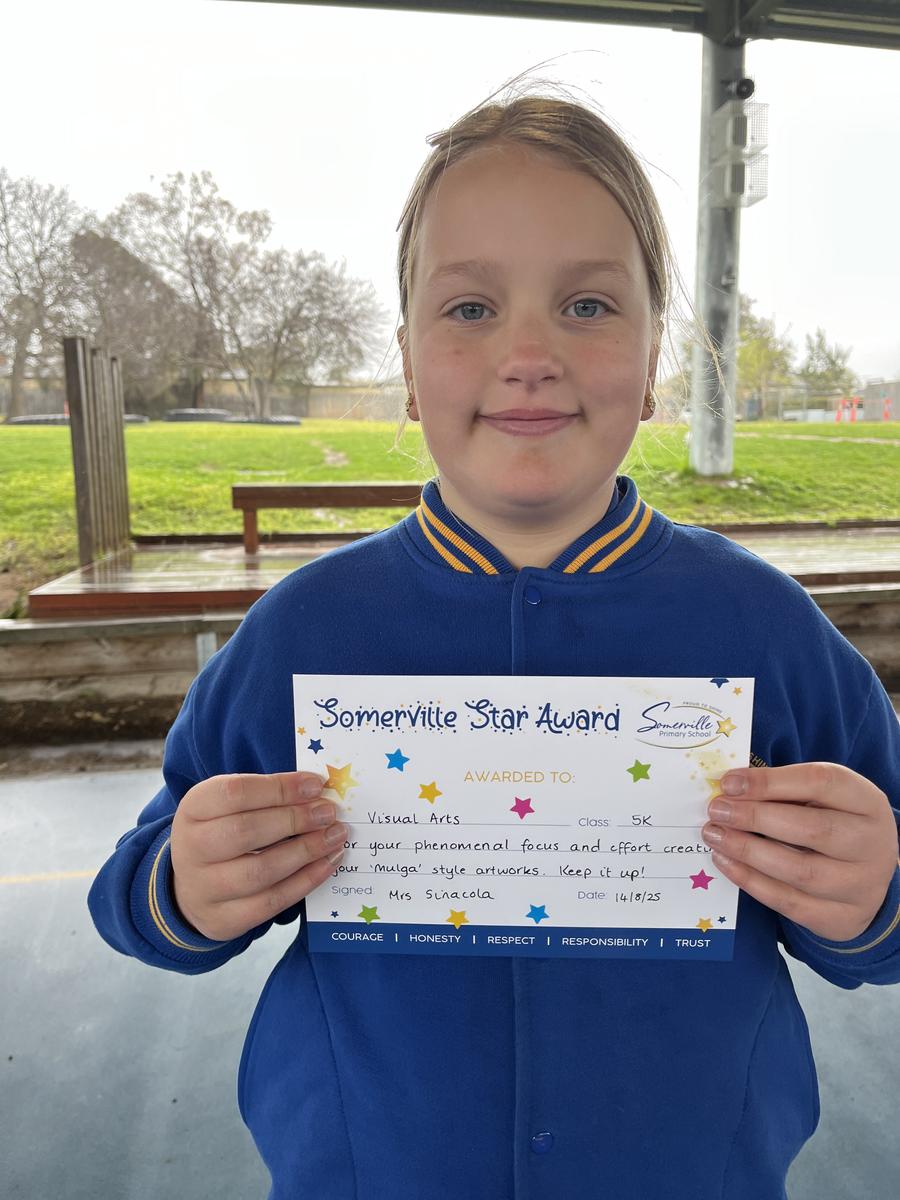 Somerville Star Award
PROUD TO SHINE
Somerville
Primary School
AWARDED TO:
Visual Arts Class: 5K
your phenomenal focus and effort
your 'Mulga' style artworks. Keep it up!
Signed: Mrs Sinacola Date: 14/8/25
COURAGE | HONESTY | RESPECT | RESPONSIBILITY | TRUST